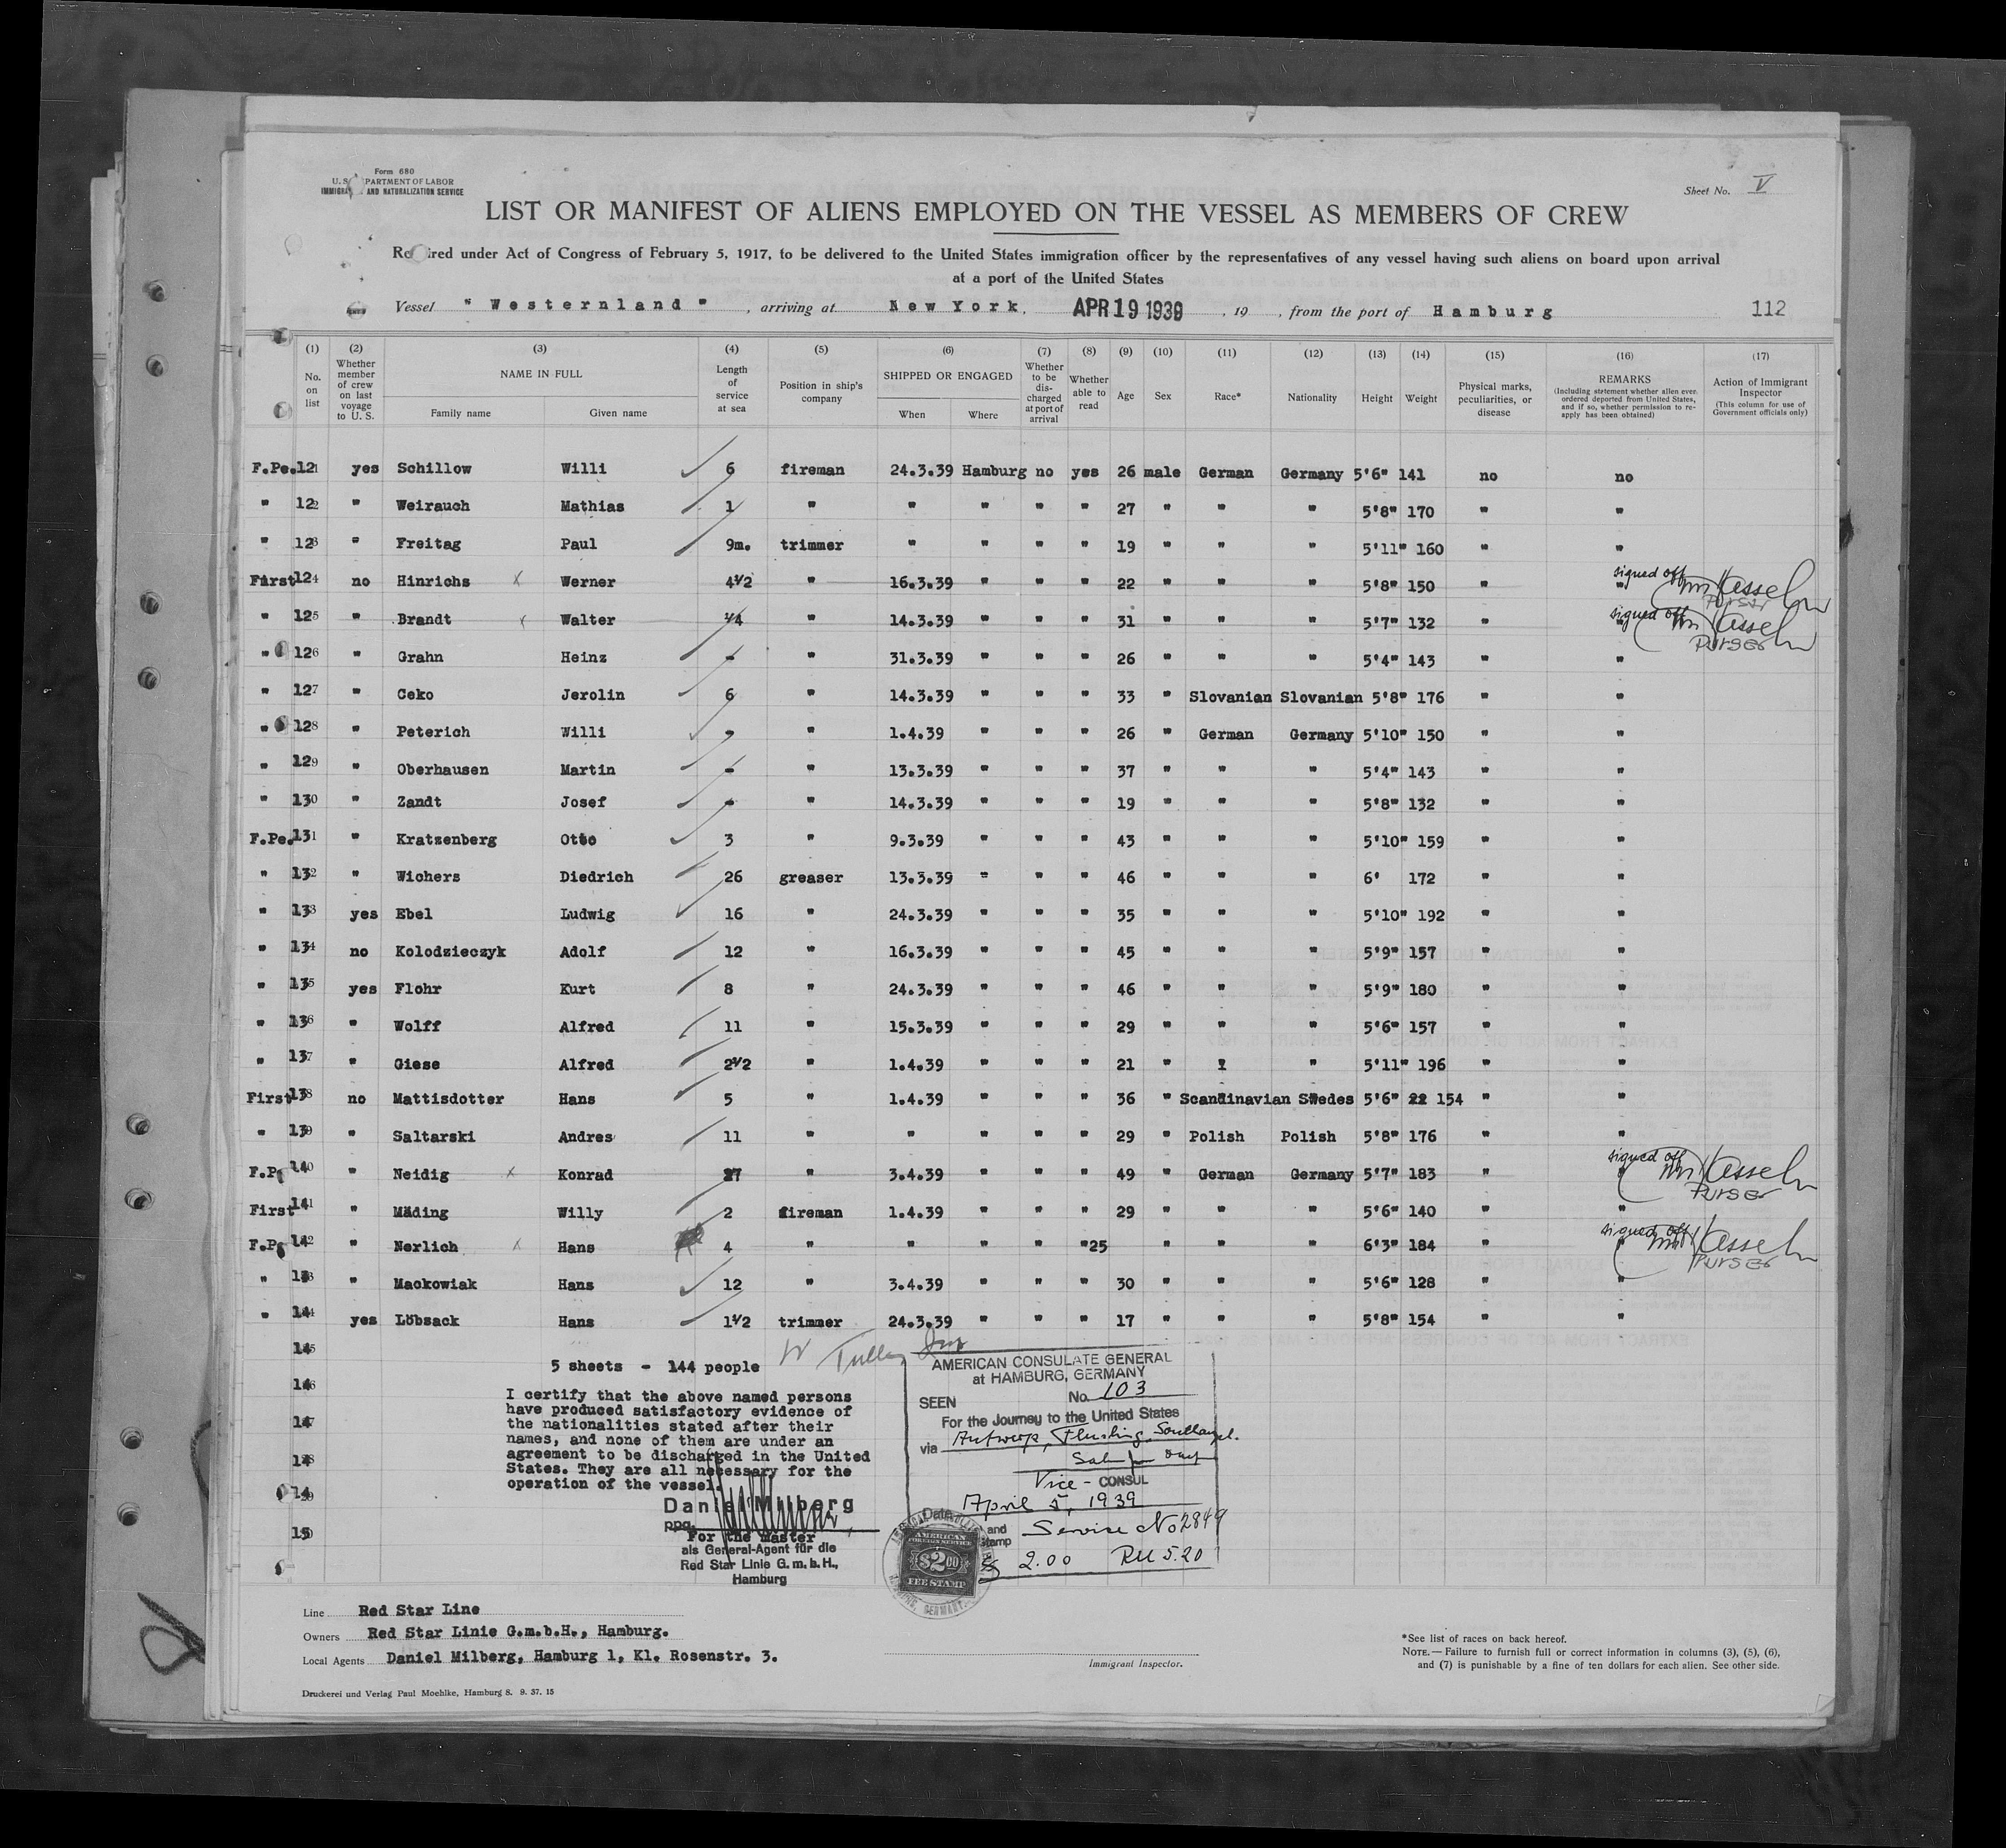 Form 680
U. S. DEPARTMENT OF LABOR
IMMIGRATION AND NATURALIZATION SERVICE
Sheet No. V
LIST OR MANIFEST OF ALIENS EMPLOYED ON THE VESSEL AS MEMBERS OF CREW
Required under Act of Congress of February 5, 1917, to be delivered to the United States immigration officer by the representatives of any vessel having such aliens on board upon arrival
at a port of the United States
Vessel " Westernland " , arriving at New York, APR 19 1939 , 19 , from the port of Hamburg 112
(1) No. on list (2) Whether member of crew on last voyage to U. S. (3) NAME IN FULL Family name Given name (4) Length of service at sea (5) Position in ship's company (6) SHIPPED OR ENGAGED When Where (7) Whether to be discharged at port of arrival (8) Whether able to read (9) Age (10) Sex (11) Race* (12) Nationality (13) Height (14) Weight (15) Physical marks, peculiarities, or disease (16) REMARKS (Including statement whether alien ever ordered deported from United States, and if so, whether permission to reapply has been obtained) (17) Action of Immigrant Inspector (This column for use of Government officials only)
F.Pe. 121 yes Schillow Willi 6 fireman 24.3.39 Hamburg no yes 26 male German Germany 5'6" 141 no no
" 122 " Weirauch Mathias 1 " " " " " 27 " " " 5'8" 170 " "
" 123 " Freitag Paul 9m. trimmer " " " " 19 " " " 5'11" 160 " "
First 124 no Hinrichs x Werner 4½ " 16.3.39 " " " 22 " " " 5'8" 150 " " signed off Purser
" 125 " Brandt x Walter ¼ " 14.3.39 " " " 31 " " " 5'7" 132 " " signed off Purser
" 126 " Grahn Heinz - " 31.3.39 " " " 26 " " " 5'4" 143 " "
" 127 " Ceko Jerolin 6 " 14.3.39 " " " 33 " Slovanian Slovanian 5'8" 176 " "
" 128 " Peterich Willi - " 1.4.39 " " " 26 " German Germany 5'10" 150 " "
" 129 " Oberhausen Martin - " 13.3.39 " " " 37 " " " 5'4" 143 " "
" 130 " Zandt Josef - " 14.3.39 " " " 19 " " " 5'8" 132 " "
F.Pe. 131 " Kratzenberg Otto 3 " 9.3.39 " " " 43 " " " 5'10" 159 " "
" 132 " Wichers Diedrich 26 greaser 13.3.39 " " " 46 " " " 6' 172 " "
" 133 yes Ebel Ludwig 16 " 24.3.39 " " " 35 " " " 5'10" 192 " "
" 134 no Kolodzieczyk Adolf 12 " 16.3.39 " " " 45 " " " 5'9" 157 " "
" 135 yes Flohr Kurt 8 " 24.3.39 " " " 46 " " " 5'9" 180 " "
" 136 " Wolff Alfred 11 " 15.3.39 " " " 29 " " " 5'6" 157 " "
" 137 " Giese Alfred 2½ " 1.4.39 " " " 21 " " " 5'11" 196 " "
First 138 no Mattisdotter Hans 5 " 1.4.39 " " " 36 " Scandinavian Swedes 5'6" 154 " "
" 139 " Saltarski Andres 11 " " " " " 29 " Polish Polish 5'8" 176 " "
F.Pe 140 " Neidig x Konrad 27 " 3.4.39 " " " 49 " German Germany 5'7" 183 " " signed off Purser
First 141 " Mäding Willy 2 fireman 1.4.39 " " " 29 " " " 5'6" 140 " "
F.Pe 142 " Nerlich x Hans 4 " " " " " 25 " " " 6'3" 184 " " signed off Purser
" 143 " Mackowiak Hans 12 " 3.4.39 " " " 30 " " " 5'6" 128 " "
" 144 yes Löbsack Hans 1½ trimmer 24.3.39 " " " 17 " " " 5'8" 154 " "
145
146
147
148
149
150
5 sheets - 144 people
I certify that the above named persons
have produced satisfactory evidence of
the nationalities stated after their
names, and none of them are under an
agreement to be discharged in the United
States. They are all necessary for the
operation of the vessel.
Daniel Milberg
ppa.
For the Master
als General-Agent für die
Red Star Linie G. m. b. H.,
Hamburg
AMERICAN CONSULATE GENERAL
at HAMBURG, GERMANY
SEEN No. 103
For the Journey to the United States
via Antwerp, Flushing,
Vice - CONSUL
Date April 5, 1939
and Stamp Service No 2849
$ 2.00 RM 5.20
AMERICAN
FOREIGN SERVICE
$2.00
FEE STAMP
Line Red Star Line
Owners Red Star Linie G.m.b.H., Hamburg.
Local Agents Daniel Milberg, Hamburg 1, Kl. Rosenstr. 3.
Immigrant Inspector.
*See list of races on back hereof.
NOTE.—Failure to furnish full or correct information in columns (3), (5), (6),
and (7) is punishable by a fine of ten dollars for each alien. See other side.
Druckerei und Verlag Paul Moehlke, Hamburg 8. 9. 37. 15